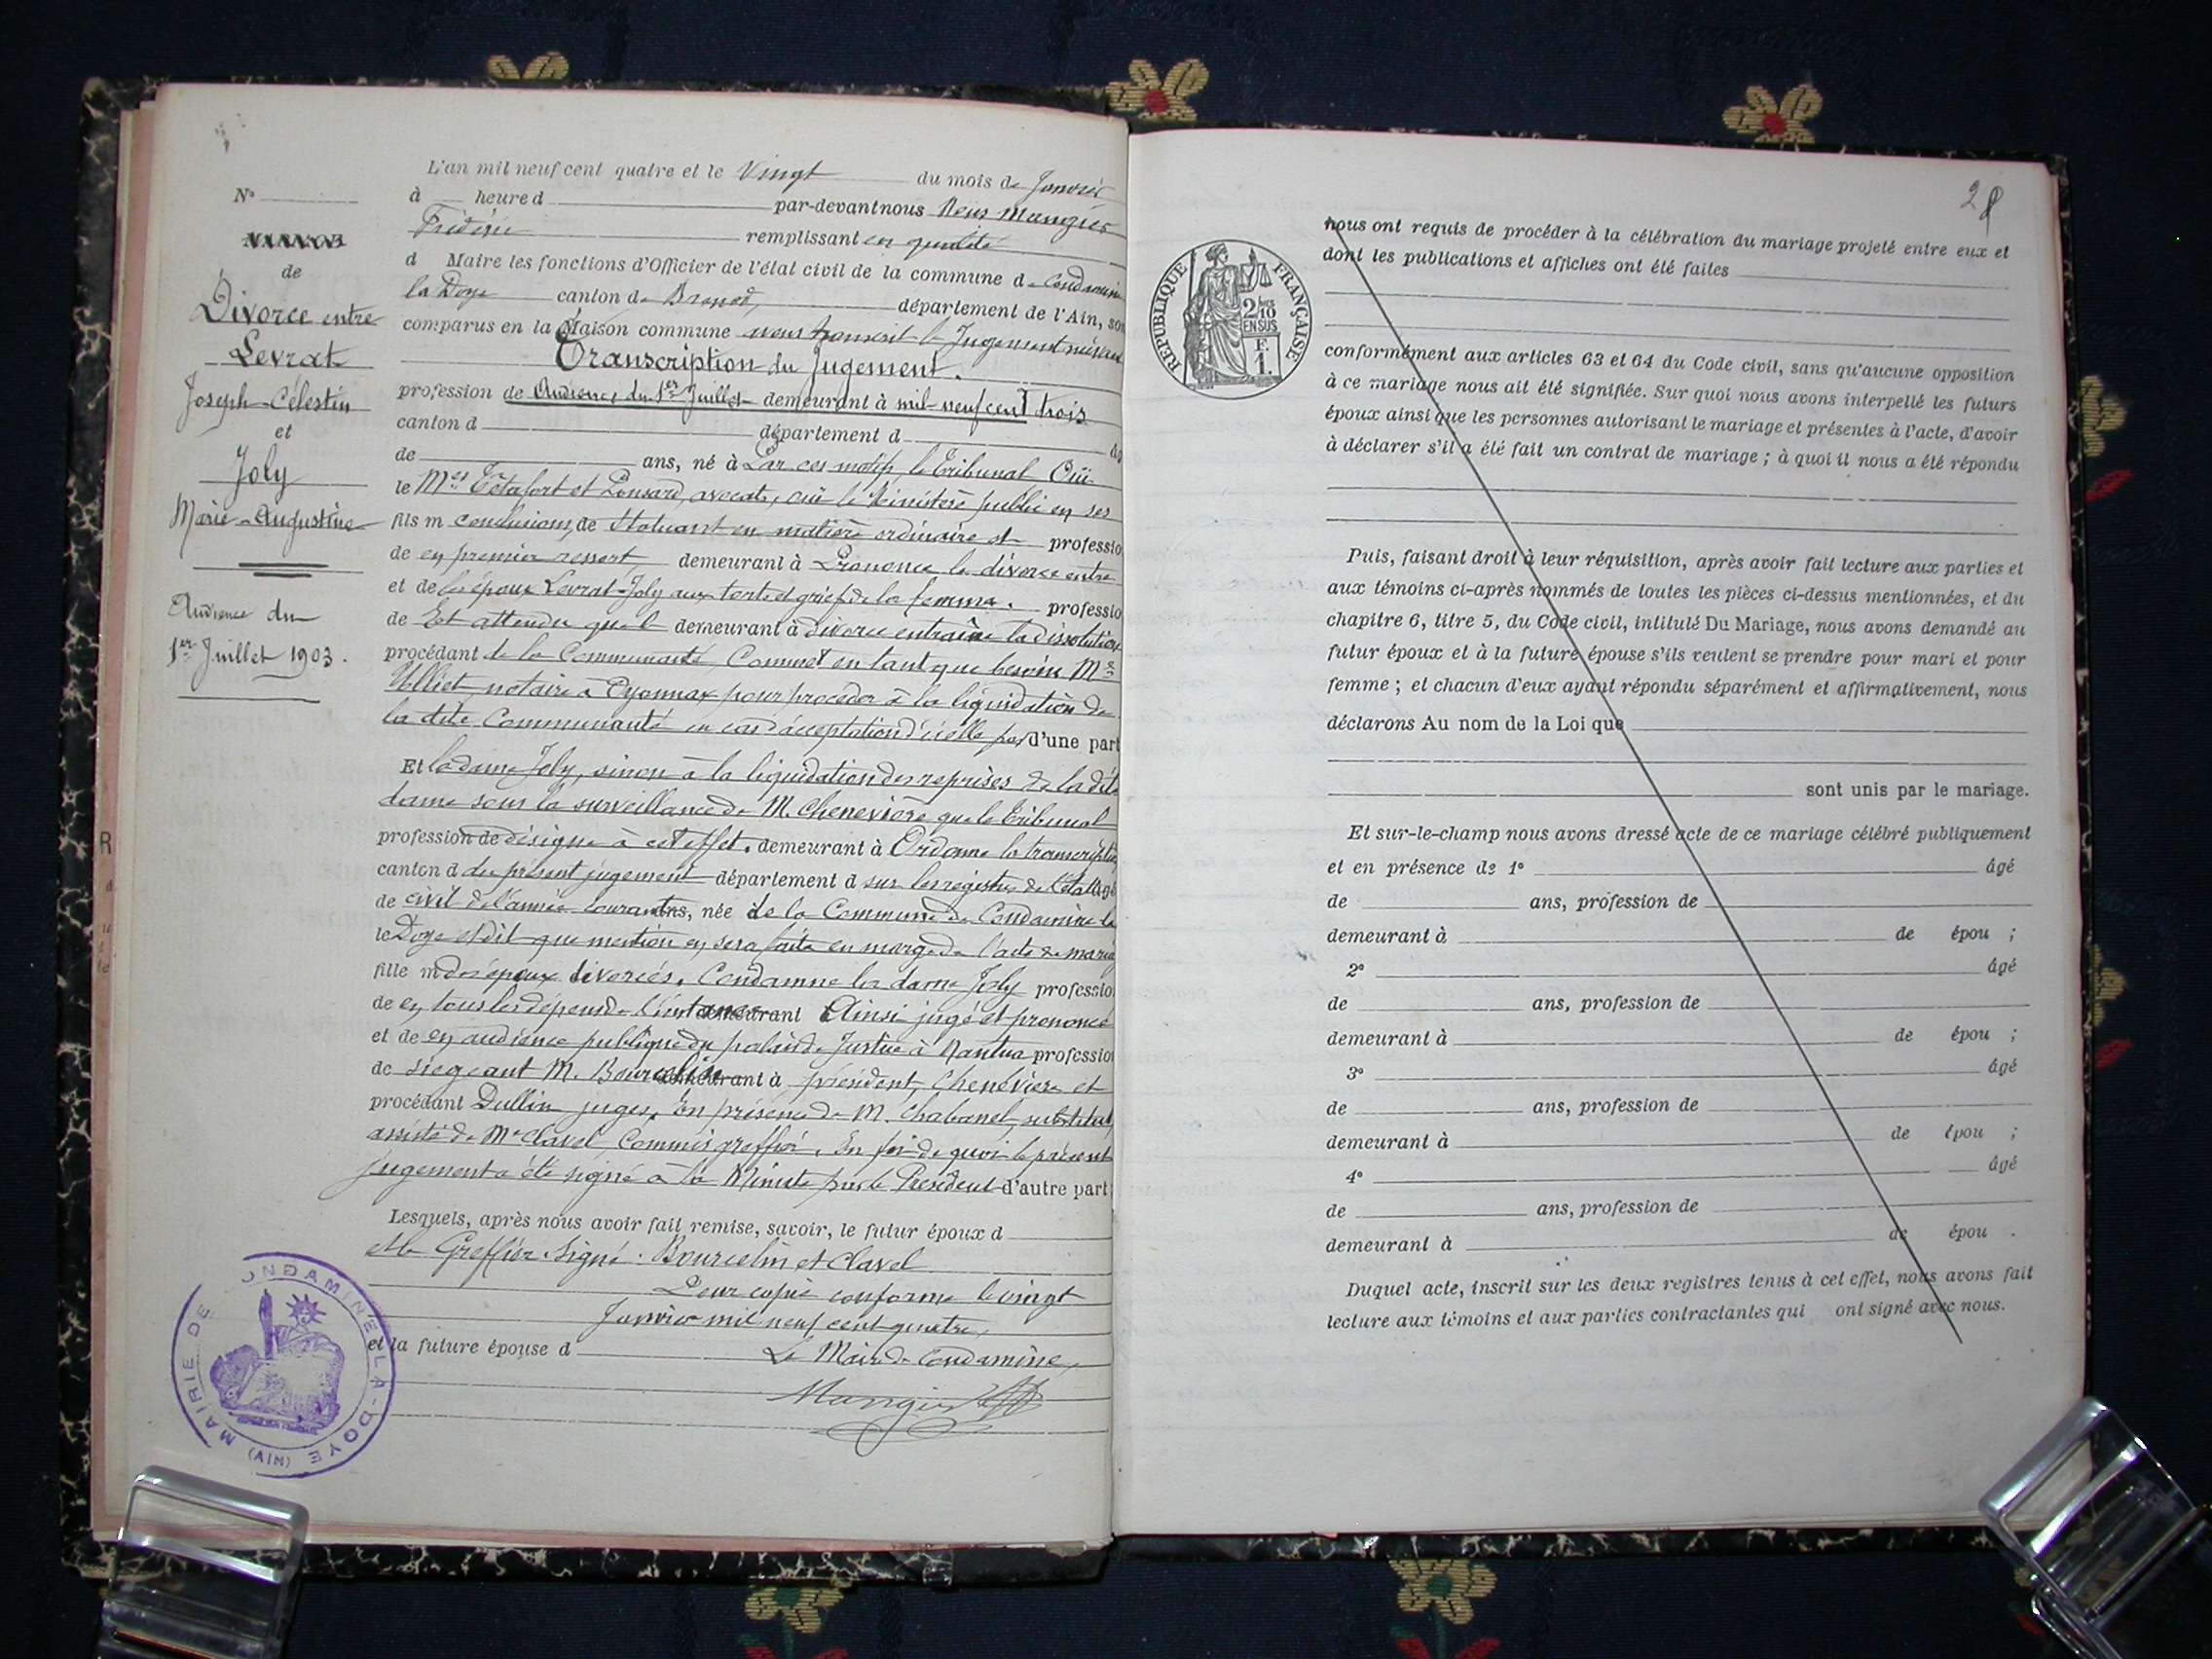 N°
de
Divorce entre
Levrat
Joseph-Célestin
et
Joly
Marie-Augustine
Audience du
1er Juillet 1903.
L'an mil neuf cent quatre et le Vingt du mois de Janvier
à heure d par-devant nous Nous Mangier
Frédéric remplissant en qualité
d Maire les fonctions d'Officier de l'état civil de la commune de Condamine
la Doye canton de Brenod, département de l'Ain, son
comparus en la Maison commune avons transcrit le Jugement suivant
Transcription du Jugement.
profession de Audience du 1er Juillet demeurant à mil-neuf cent trois
canton d département d
de ans, né à Par ces motifs, le Tribunal Ouï
le Mes Tétafort et Ponsard, avocats, ouï le Ministère public en ses
fils m conclusions, de Statuant en matière ordinaire et professio
de en premier ressort, demeurant à Prononce le divorce entre
et de les époux Levrat-Joly aux torts et griefs de la femme. professio
de Et attendu que le demeurant à divorce entraîne la dissolution
procédant de la Communauté, Commet en tant que besoin Me
Ulliet notaire à Oyonnax pour procéder à la liquidation de
la dite Communauté en cas d'acceptation d'icelle par d'une part
Et la dame Joly, sinon à la liquidation des reprises de la dite
dame sous la surveillance de M. Chenevière que le Tribunal
profession de désigne à cet effet. demeurant à Ordonne la transcription
canton d du présent jugement département d sur les registres de l'état âgé
de civil de l'année courante ans, née de la Commune de Condamine la
le Doye et dit que mention en sera faite en marge de l'acte de mariage
fille m des époux divorcés. Condamne la dame Joly professio
de en tous les dépens de l'instance demeurant Ainsi jugé et prononcé
et de en audience publique du palais de Justice à Nantua profession
de siégeant M. Bourcelin demeurant à président, Chenevière et
procédant Dullin juges. En présence de M. Chabanel, substitut,
assisté de Me Clavel Commis greffier. En foi de quoi le présent
jugement a été signé à la Minute par le Président d'autre part
Lesquels, après nous avoir fait remise, savoir, le futur époux d
et le Greffier. Signé: Bourcelin et Clavel
Pour copie conforme le vingt
Janvier mil neuf cent quatre,
et la future épouse d Le Maire de Condamine,
Mangier
MAIRIE DE CONDAMINE LA-DOYE (AIN)
28
REPUBLIQUE FRANÇAISE
2/10
EN SUS
F.
1.
nous ont requis de procéder à la célébration du mariage projeté entre eux et
dont les publications et affiches ont été faites
conformément aux articles 63 et 64 du Code civil, sans qu'aucune opposition
à ce mariage nous ait été signifiée. Sur quoi nous avons interpellé les futurs
époux ainsi que les personnes autorisant le mariage et présentes à l'acte, d'avoir
à déclarer s'il a été fait un contrat de mariage; à quoi il nous a été répondu
Puis, faisant droit à leur réquisition, après avoir fait lecture aux parties et
aux témoins ci-après nommés de toutes les pièces ci-dessus mentionnées, et du
chapitre 6, titre 5, du Code civil, intitulé Du Mariage, nous avons demandé au
futur époux et à la future épouse s'ils veulent se prendre pour mari et pour
femme; et chacun d'eux ayant répondu séparément et affirmativement, nous
déclarons Au nom de la Loi que
sont unis par le mariage.
Et sur-le-champ nous avons dressé acte de ce mariage célébré publiquement
et en présence de 1° âgé
de ans, profession de
demeurant à de épou ;
2° âgé
de ans, profession de
demeurant à de épou ;
3° âgé
de ans, profession de
demeurant à de épou ;
4° âgé
de ans, profession de
demeurant à de épou .
Duquel acte, inscrit sur les deux registres tenus à cet effet, nous avons fait
lecture aux témoins et aux parties contractantes qui ont signé avec nous.